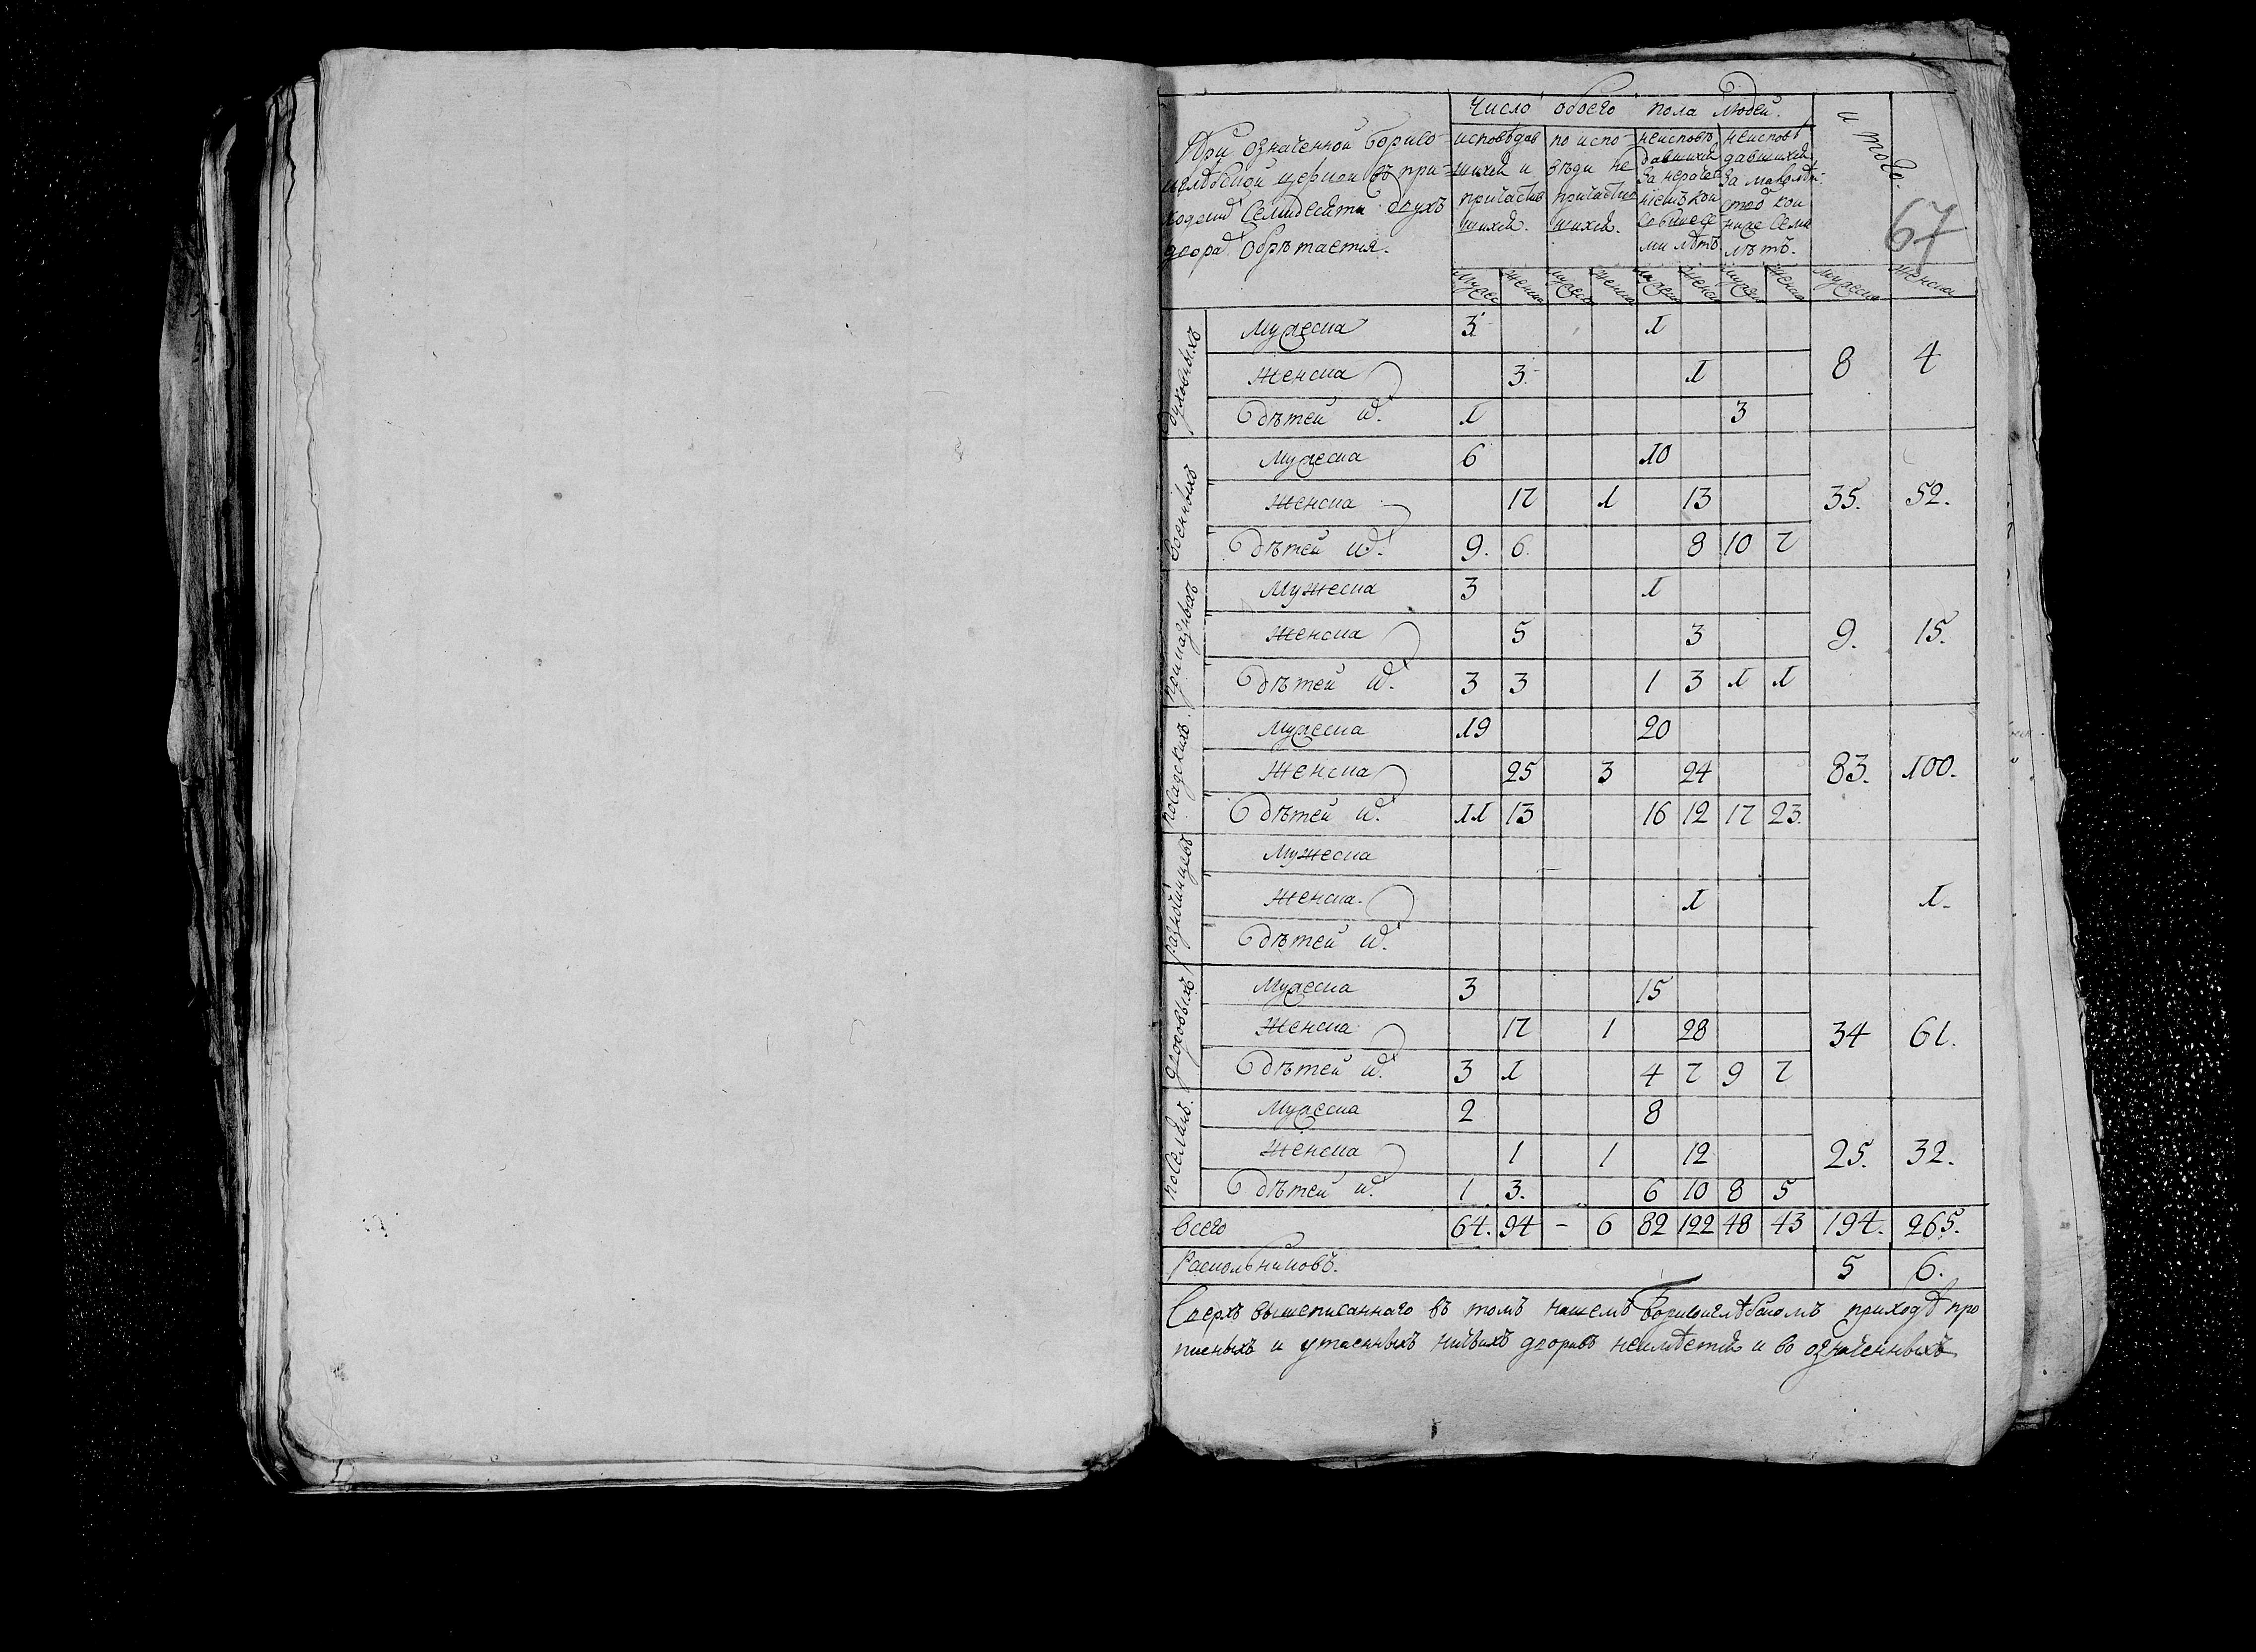 Число обоего пола людей.
итого.
67
При означенной борисо-
глѣбской церкви въ при-
ходении Семидесяти двухъ
дворах Обрѣтается.
исповѣдав
шихся и
причастив
шихся.
по испо
вѣди не
причастив
шихся.
неисповѣ
давшихся
за нераче
ниемъ кои
Свыше се
ми лѣтъ
неисповѣ
давшихся
за малолѣт
ством кои
ниже Семи
лѣтъ.
мужеска женска мужеска женска мужеска женска мужеска женска мужеска женска
духовныхъ
Мужеска 3 1
Женска 3. 1 8 4
дѣтей их 1 3
военныхъ
Мужеска 6 10
Женска 17 1 13 35. 52.
дѣтей их 9. 6. 8 10 7
приказныхъ
Мужеска 3 1
Женска 5 3 9. 15.
дѣтей их 3 3 1 3 1 1
посадскихъ
Мужеска 19 20
Женска 25 3 24 83. 100.
дѣтей их 11 13 16 12 17 23.
разночинцевъ
Мужеска
Женска. 1 1.
дѣтей их
дворовыхъ
Мужеска 3 15
Женска 17 1 28 34 61.
дѣтей их 3 1 4 7 9 7
поселянъ.
Мужеска 2 8
Женска 1 1 12 25. 32.
дѣтей их 1 3. 6 10 8 5
всего 64. 94 - 6 82 122 48 43 194. 265.
Раскольниковъ. 5 6.
Сверхъ вышеписаннаго въ томъ нашемъ Борисоглѣбскомъ приходѣ про
писныхъ и утаенныхъ никвихъ дворовъ неимѣется и во означенныхъ